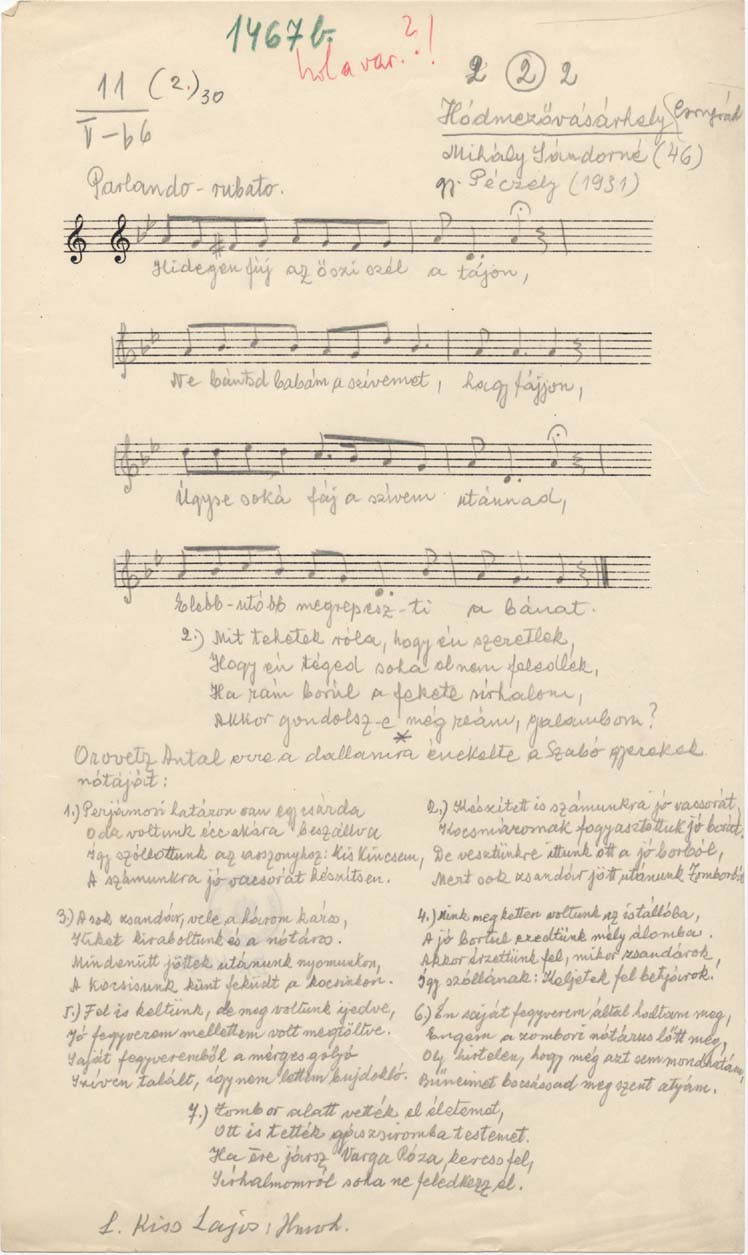 1467b.
hol a var.?!
11 (2.) 30
V-b6
2 2 2
Hódmezővásárhely (Csongrád
Mihály Sándorné (46)
gy. Péczely (1931)
Parlando-rubato.
Hidegen fúj az őszi szél a tájon,
Ne bántsd babám a szívemet, hagy fájjon,
Úgyse soká fáj a szívem utánnad,
Elebb-utóbb megrepesz-ti a bánat.
2.) Mit tehetek róla, hogy én szeretlek,
Hogy én téged soha el nem feledlek,
Ha rám borúl a fekete sírhalom,
Akkor gondolsz-e még reám, galambom?
Orovetz Antal erre a dallamra énekelte a Szabó gyerekek
nótáját:
1.) Perjámosi határon van egy csárda
Oda voltunk éccakára beszállva
Így szóllottunk az asszonyhoz: Kis Kincsem,
A számunkra jó vacsorát készítsen.
2.) Készített is számunkra jó vacsorát,
Kocsmárosnak fogyasztottuk jó borát.
De vesztünkre ittunk ott a jó borból,
Mert sok zsandár jött utánunk Zomborból
3.) A sok zsandár, vele a három káró,
Kiket kiraboltunk és a nótáros.
Mindenütt jöttek utánunk nyomunkon,
A Kocsisunk künt feküdt a kocsinkon.
4.) Mink megketten voltunk az istállóba,
A jó bortul eredtünk mély álomba.
Akkor érzettünk fel, mikor zsandárok,
Így szóllának: Keljetek fel betyárok.
5.) Fel is keltünk, de meg voltunk ijedve,
Jó fegyverem mellettem volt megtöltve.
Saját fegyveremből a mérges golyó
Szíven talált, így nem lettem bujdokló.
6.) Én saját fegyverem által haltam meg,
Engem a zombori nótárus lőtt meg,
Oly hirtelen, hogy még azt sem mondhatám,
Bűneimet bocsássad meg szent atyám.
7.) Zombor alatt vették el életemet,
Ott is tették gyászsiromba testemet.
Ha erre jársz Varga Róza, keress fel,
Sírhalmomról soha ne feledkezz el.
L. Kiss Lajos: Hmvh.